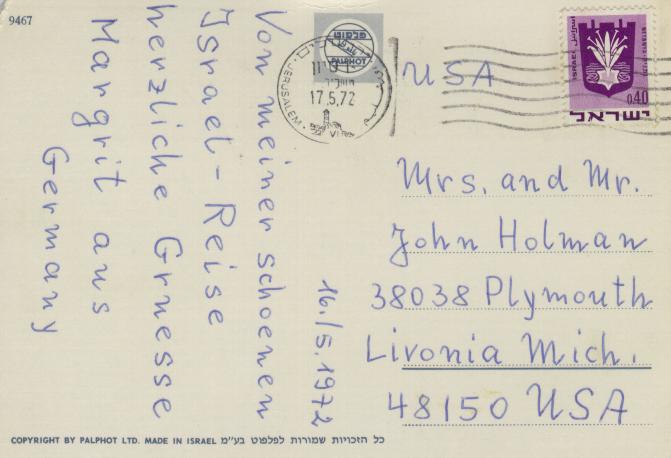 9467
Von meiner schoenen
Israel-Reise
herzliche Gruesse
Margrit aus
Germany
16./5.1972
פלפוט
PALPHOT
JERUSALEM
17.5.72
USA
ISRAEL
0.40
ישראל
Mrs. and Mr.
John Holman
38038 Plymouth
Livonia Mich.
48150 USA
COPYRIGHT BY PALPHOT LTD. MADE IN ISRAEL כל הזכויות שמורות לפלפוט בע״מ